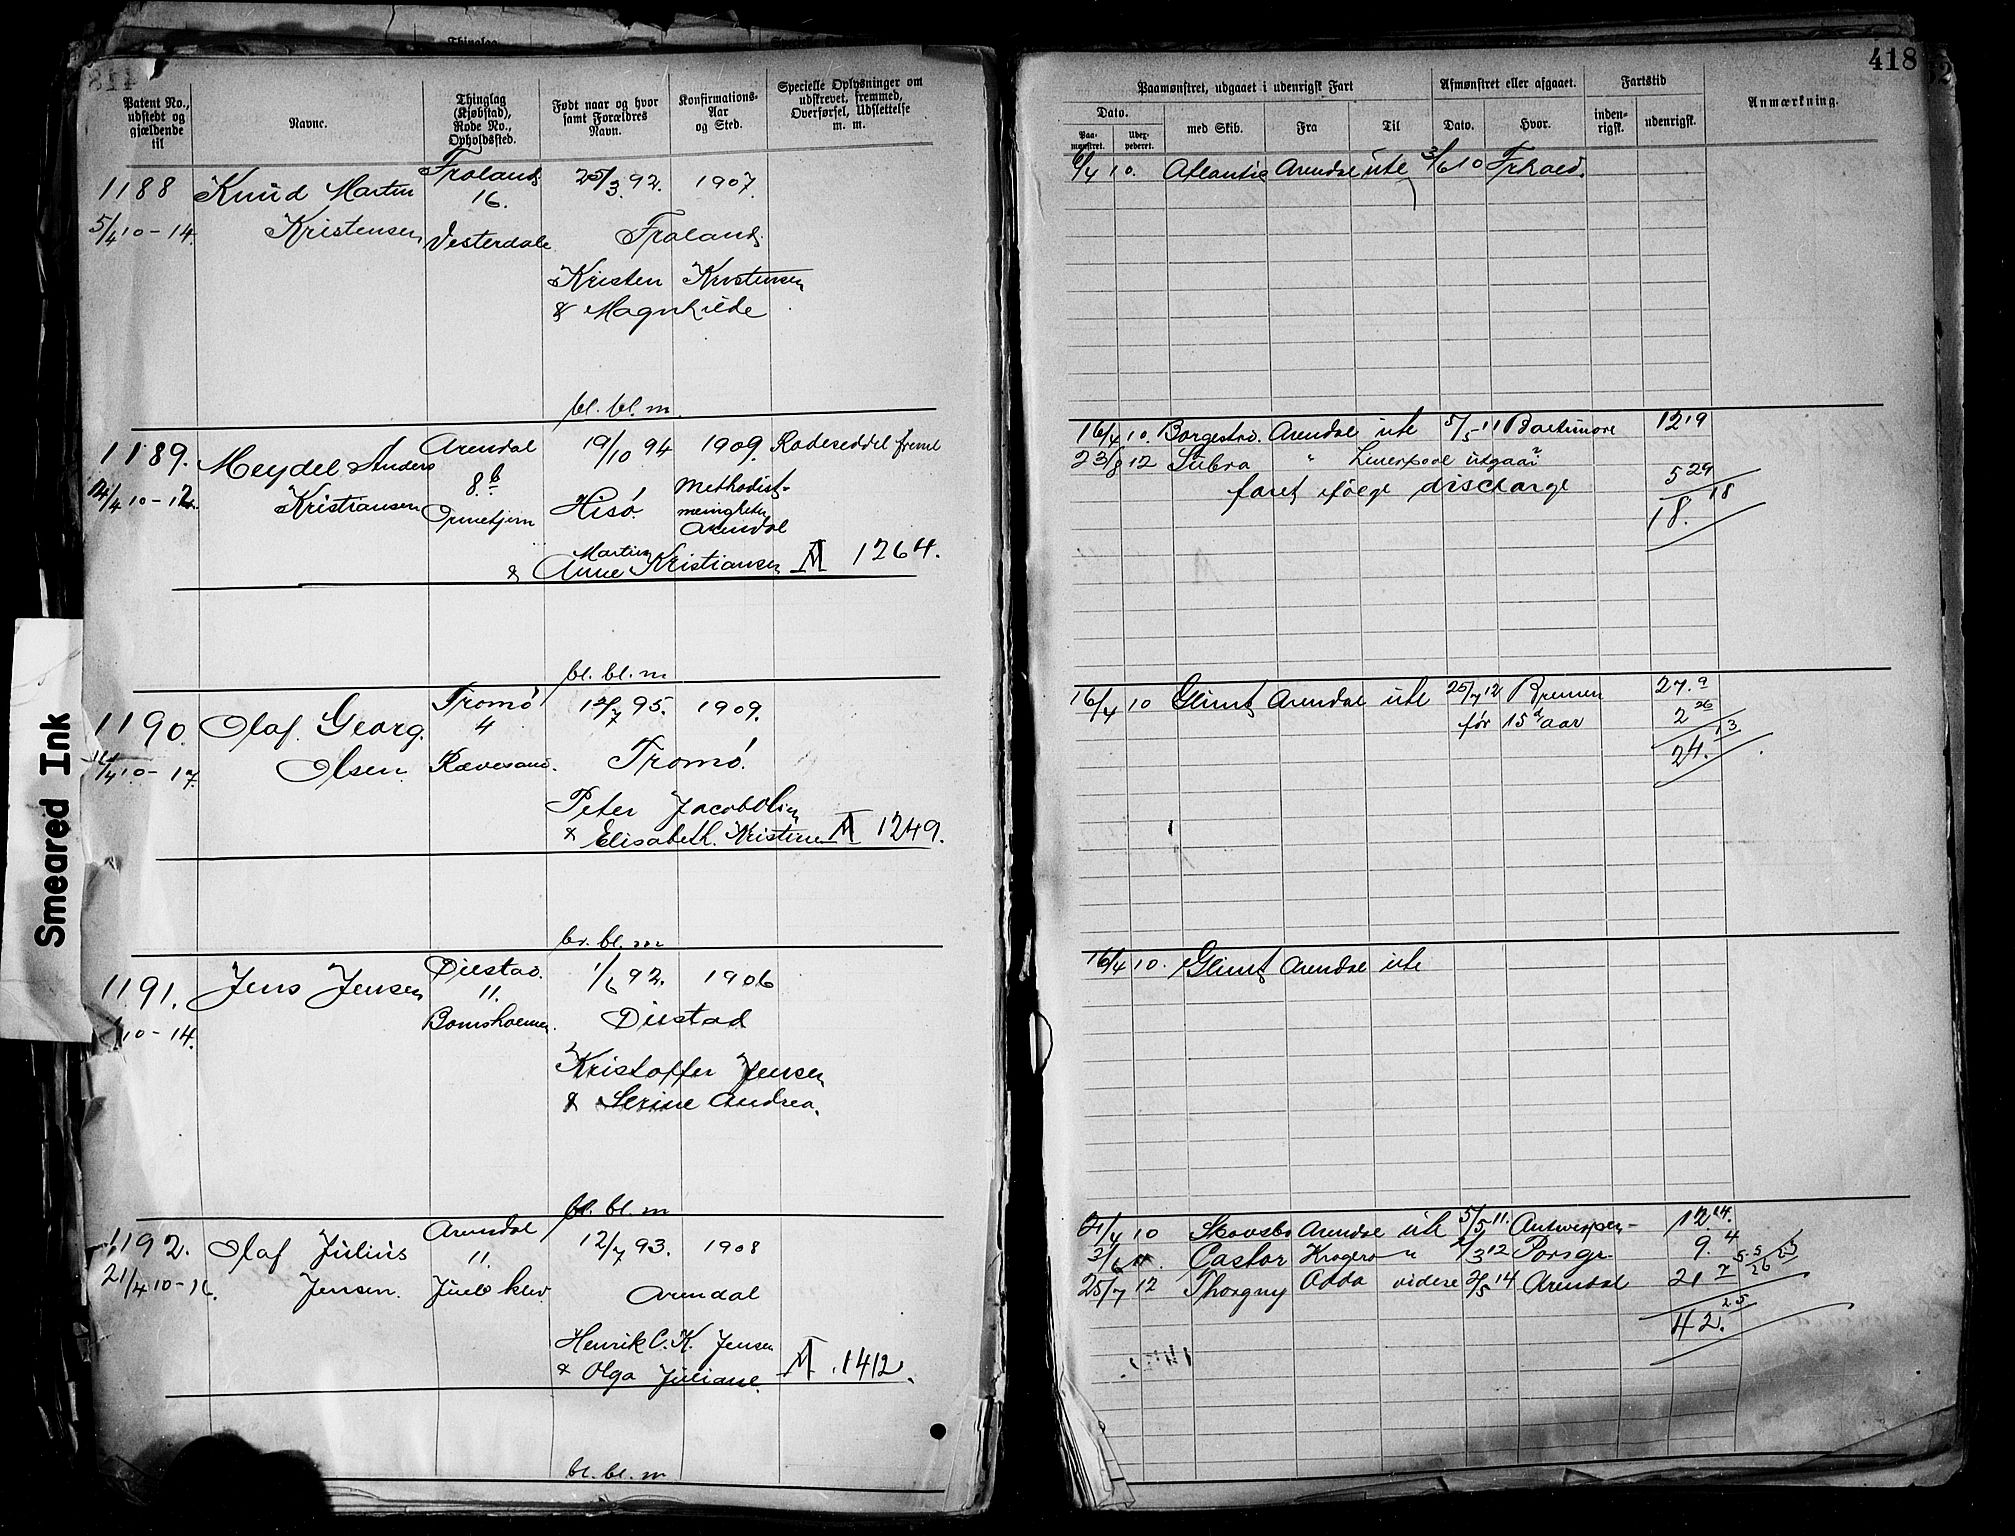 418
Patent No., udstedt og gjældende til
Navne.
Thinglag (Kjøbstad), Rode No., Opholdssted.
Født naar og hvor samt Forældres Navn.
Konfirmations-Aar og Sted.
Specielle Oplysninger om udskrevet, fremmed, Overførsel, Udslettelse m. m.
Paamønstret, udgaaet i udenrigsk Fart
Afmønstret eller afgaaet.
Fartstid
Anmærkning.
Dato.
Paa-mønstret.
med Skib.
Fra
Til
Dato.
Hvor.
inden-rigsk.
udenrigsk.
1188 Knud Martin Froland 25/3 92. 1907
16.
5/4 10-14. Kristensen Vesterdale Froland
Kristen Kristensen
& Magnhilde
bl. bl. m.
6/4 10. Atlantic Arendal ute 3/6 10
1189. Meydel Anders Arendal 19/10 94 1909. Rodeseddel
8 b
Kristiansen Hisø. Methodist-
menigheten
Arendal
Martin
& Anne Kristiansen M 1264.
bl. bl. m
16/4 10. Borgestad. Arendal ute 5/5 11 Baltimore 12 19
23/8 12 " Liverpool utgaar
faret ifølge discharge 5 29
18. 18
1190. Olaf Georg. Tromø 12/7 95. 1909.
4
16/4 10-17. Olsen. Rævesand. Tromø.
Peter Jacob Olsen
& Elisabeth Kristine M 1249.
br. bl. m
16/4 10 Glimt Arendal ute 25/7 12 Bremen 27. 9
før 15 d aar 2 26
24. 13
1191. Jens Jensen Diestad. 1/6 92. 1906
11.
10-14. Diestad
Kristoffer Jensen
& Serine Andrea.
bl. bl. m
16/4 10. Glimt Arendal ute
1192. Olaf Julius Arendal 12/7 93. 1908
11.
21/4 10-16. Jensen. Arendal
Henrik C. K. Jensen
& Olga Juliane. M 1412.
bl. bl. m
21/4 10 Skovsbo Arendal ute 5/5 11. Antwerpen 12 14.
Castor Kragerø " 2/3 12 Porsgr. 9. 4
25/7 12 Thorgny Adda videre 2/5 14 Arendal 21 7
42. 25
Smeared Ink